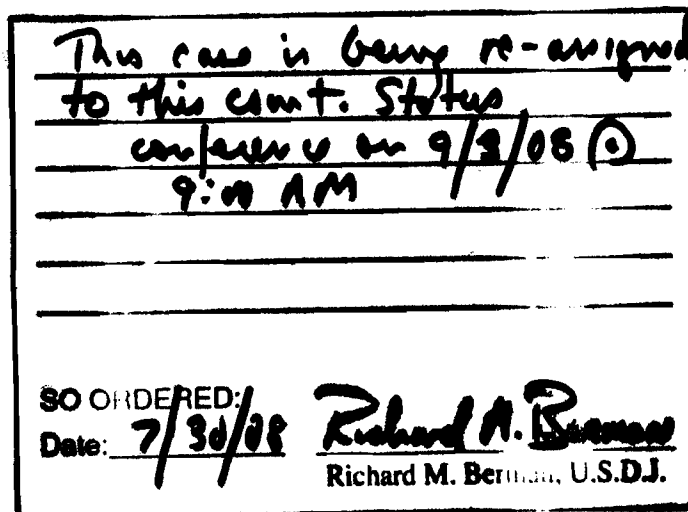 This case is being re-assigned
to this court. Status
conference on 9/8/08 @
9:00 AM
SO ORDERED:
Date: 7/30/08 Richard M. Berman
Richard M. Berman, U.S.D.J.